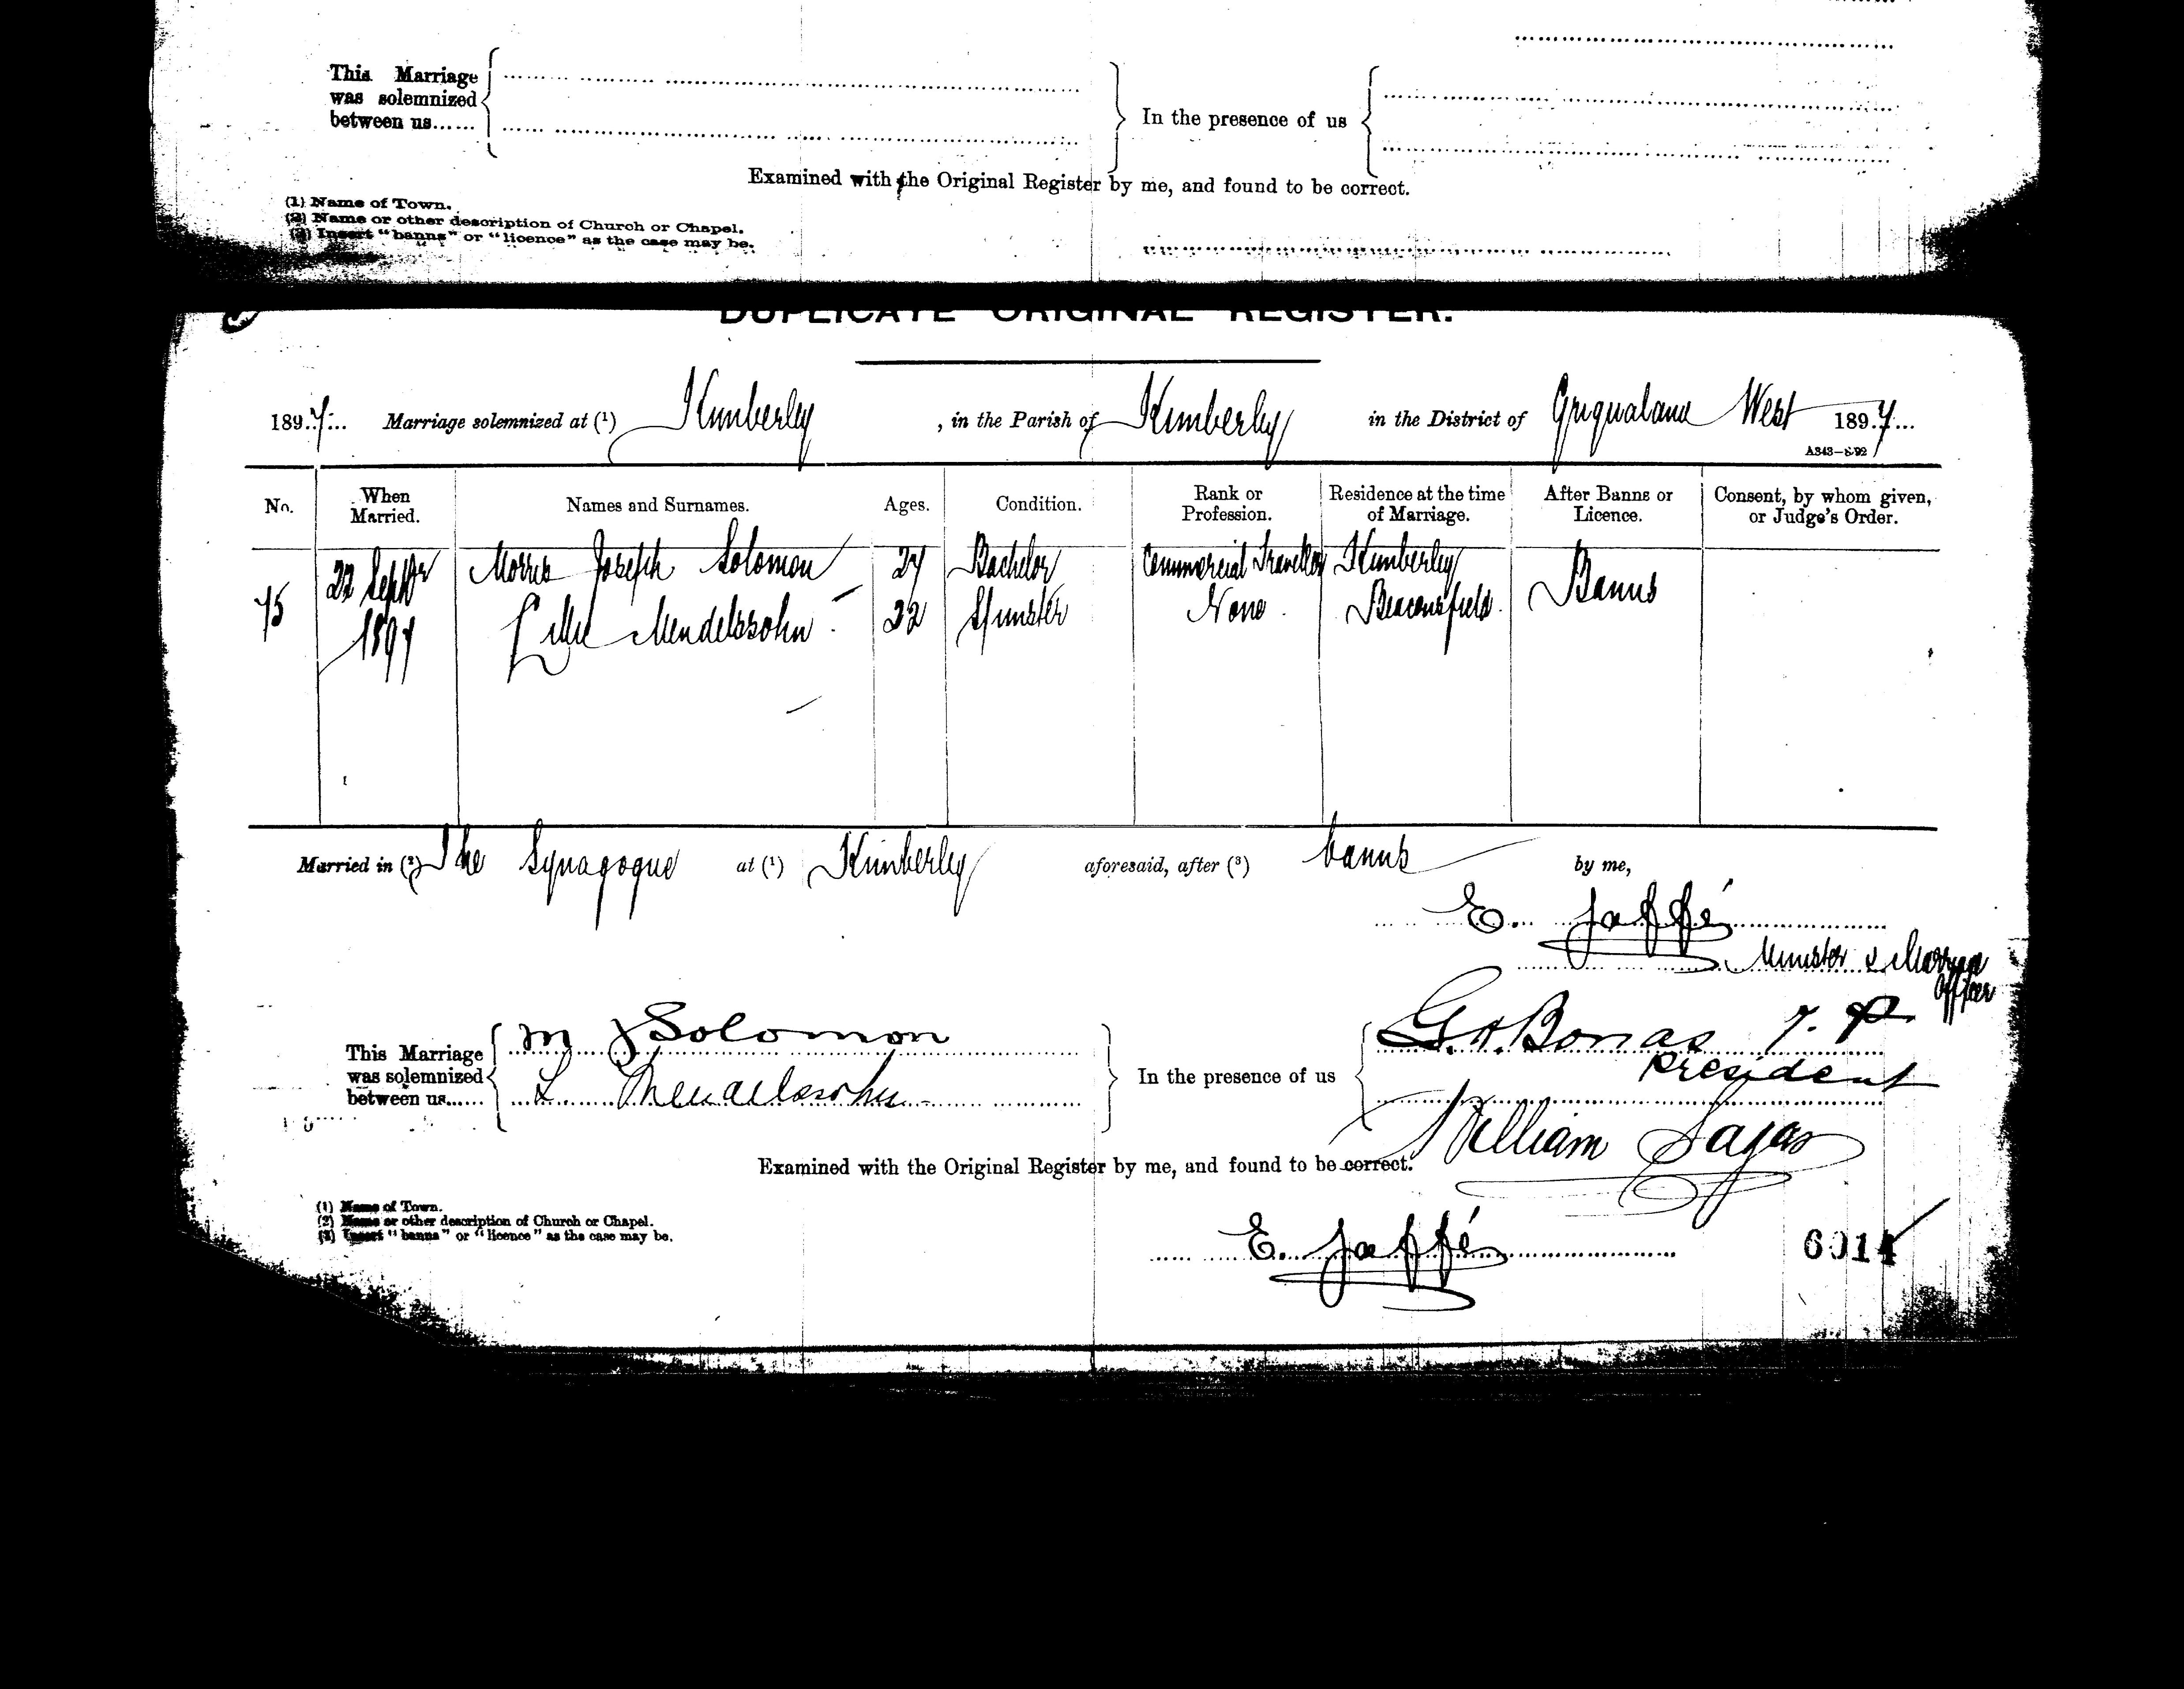 This Marriage
was solemnized
between us......
In the presence of us
Examined with the Original Register by me, and found to be correct.
(1) Name of Town.
(2) Name or other description of Church or Chapel.
(3) Insert "banns" or "licence" as the case may be.
DUPLICATE ORIGINAL REGISTER.
1897... Marriage solemnized at (1) Kimberley, in the Parish of Kimberley in the District of Griqualand West 1897...
No. When Married. Names and Surnames. Ages. Condition. Rank or Profession. Residence at the time of Marriage. After Banns or Licence. Consent, by whom given, or Judge's Order.
75 22 Septr 1897 Morris Joseph Solomon 27 Bachelor Commercial Traveller Kimberley Banns
Mendelssohn 22 Spinster None Beaconsfield
Married in (2) The Synagogue at (1) Kimberley aforesaid, after (3) banns by me,
E. Jaffé
Minister & Marriage
Officer
This Marriage
was solemnized
between us......
M J Solomon
L. Mendelssohn
In the presence of us
G. H. Bonas J. P
President
William
Examined with the Original Register by me, and found to be correct.
(1) Name of Town.
(2) Name or other description of Church or Chapel.
(3) Insert "banns" or "licence" as the case may be.
E. Jaffé
6014